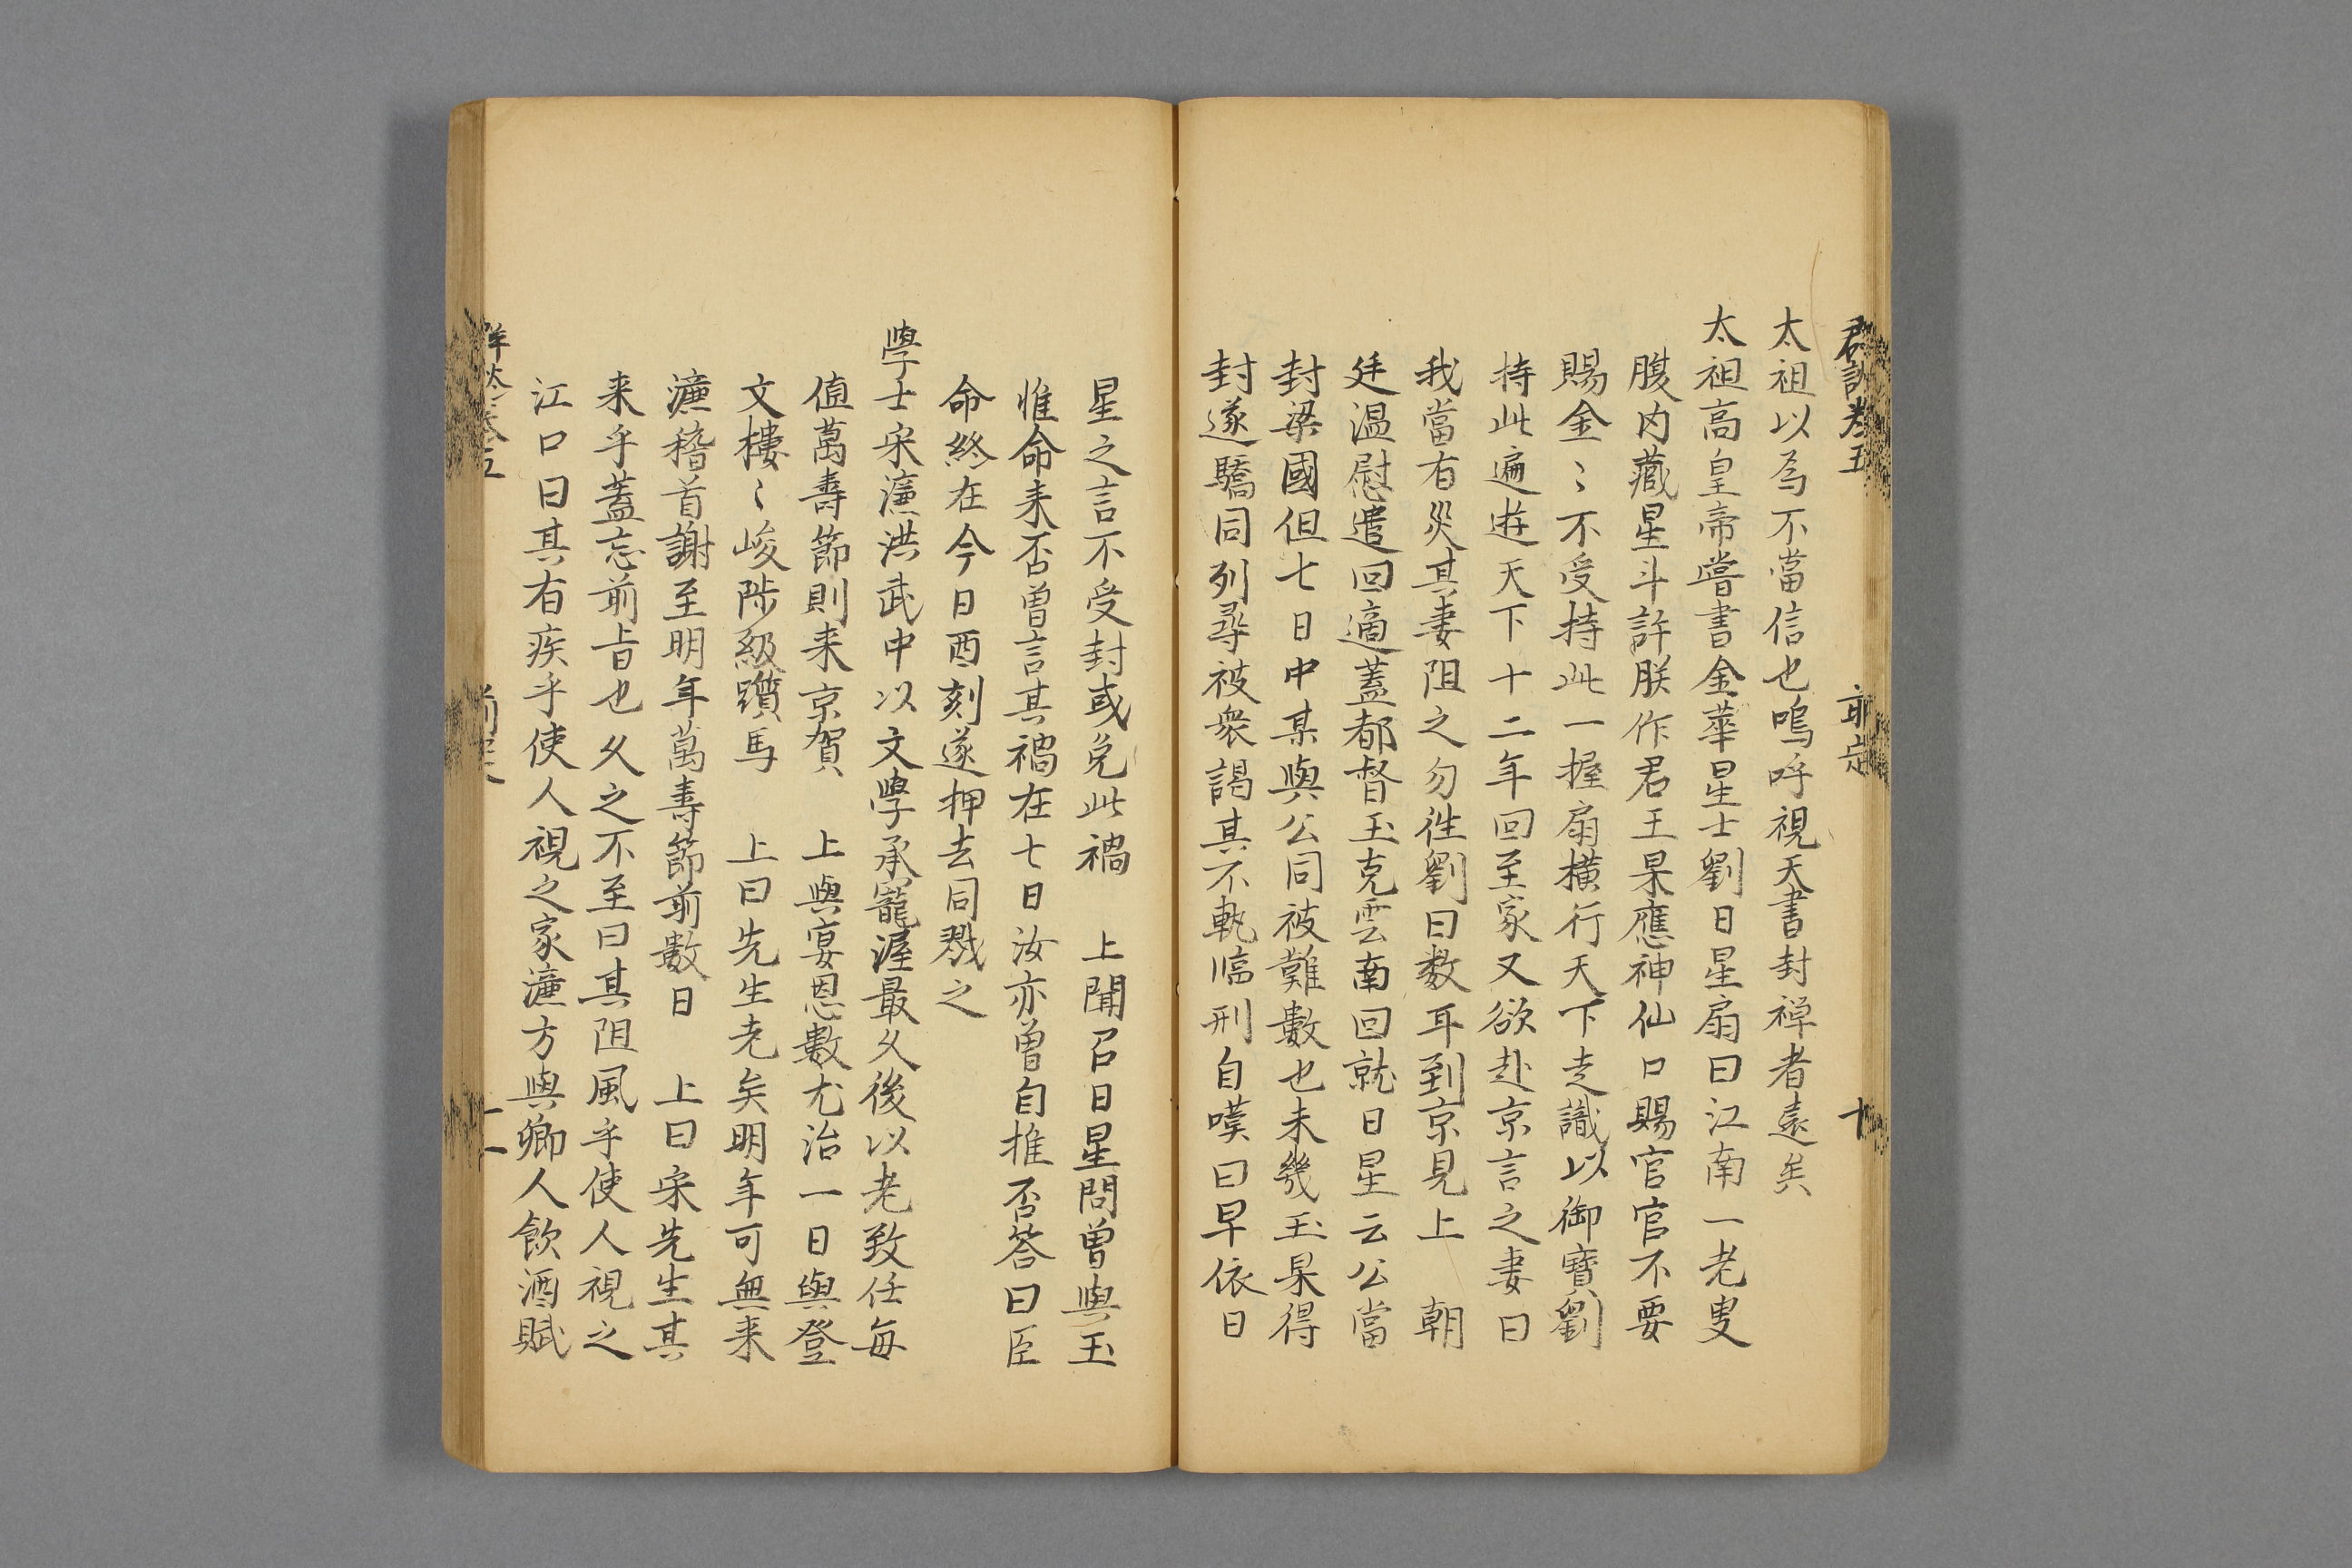 太祖以為不當信也嗚呼視天書封禪者遠矣
太祖高皇帝嘗書金華星士劉日星扇曰江南一老叟
腹内藏星斗許朕作君王果應神仙口賜官官不要
賜金〻不受持此一握扇橫行天下走識以御寶劉
持此遍遊天下十二年回至家又欲赴京言之妻曰
我當有災其妻阻之勿徃劉曰数耳到京見上 朝
廷温慰遣回適蓋都督玉克雲南回就日星云公當
封梁國但七日中某與公同被難數也未幾玉果得
封遂驕同列尋被衆謁其不軌臨刑自嘆曰早依日
星之言不受封或免此禍 上聞召日星問曾與玉
惟命来否曾言其禍在七日汝亦曾自推否答曰臣
命終在今日酉刻遂押去同戮之
學士宋濂洪武中以文學承寵渥最久後以老致任每
值萬壽節則来京賀 上與宴恩數尤洽一日與登
文樓〻峻陟級躓馬 上曰先生老矣明年可無来
濂稽首謝至明年萬壽節前數日 上曰宋先生其
来乎蓋忘前旨也久之不至曰其阻風乎使人視之
江口曰其有疾乎使人視之家濂方與鄉人飲酒賦